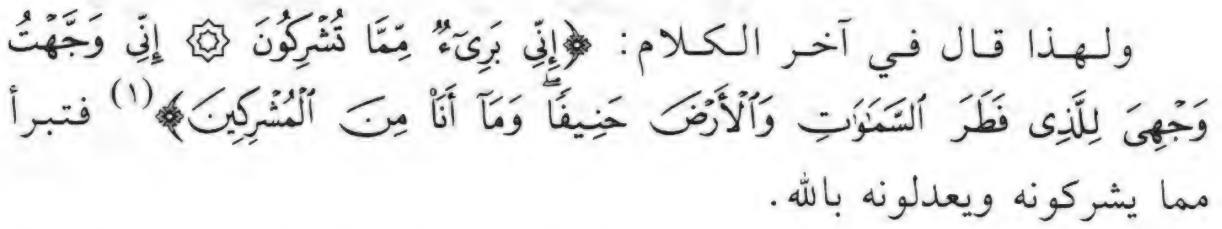 ولهذا قال في آخر الكلام: ﴿إِنِّي بَرِىٓءٌ مِّمَّا تُشْرِكُونَ ۞ إِنِّي وَجَّهْتُ
وَجْهِيَ لِلَّذِى فَطَرَ ٱلسَّمَٰوَٰتِ وَٱلْأَرْضَ حَنِيفًاۖ وَمَآ أَنَا۠ مِنَ ٱلْمُشْرِكِينَ﴾(١) فتبرأ
مما يشركونه ويعدلونه بالله.